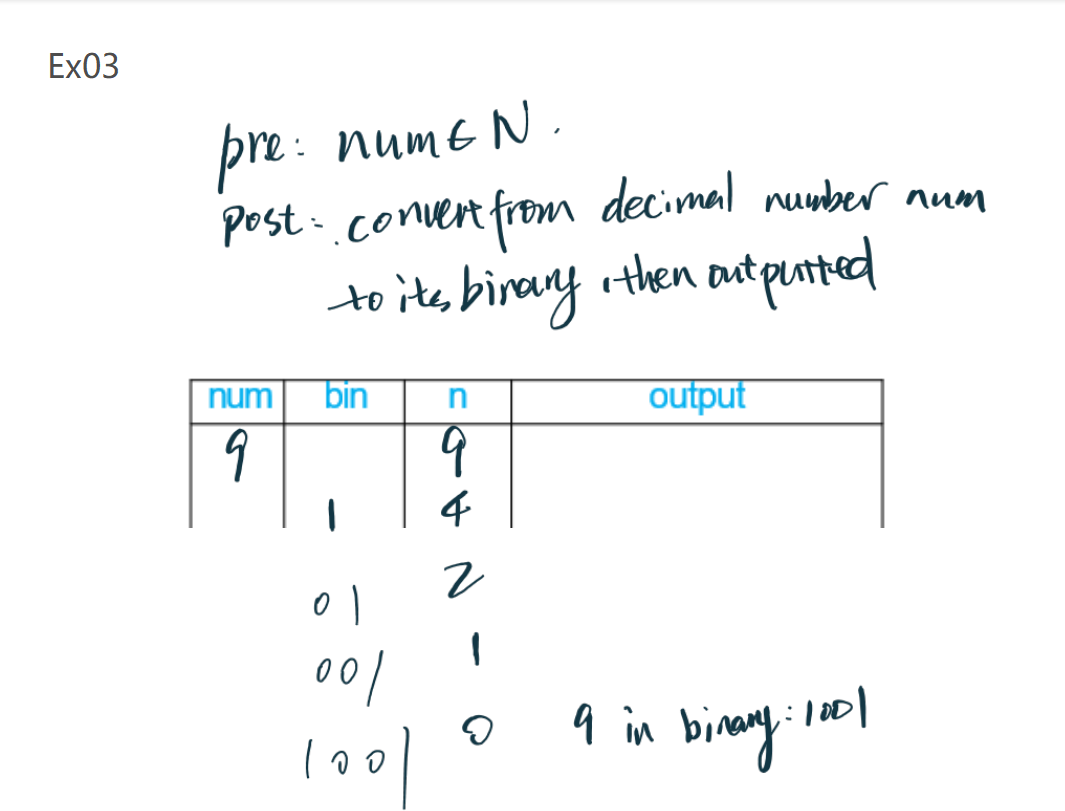 Ex03
pre: num ∈ N.
post: convert from decimal number num
to its binary, then outputted
num bin n output
9 9
1 4
01 2
001 1
1001 0 9 in binary: 1001